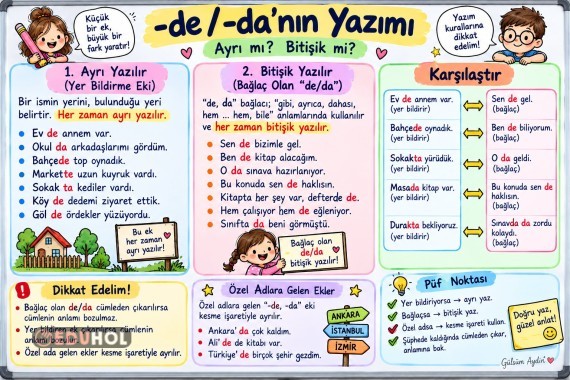 -de / -da'nın Yazımı
Ayrı mı? Bitişik mi?
Küçük
bir ek,
büyük bir
fark yaratır!
Yazım
kurallarına
dikkat
edelim!
1. Ayrı Yazılır
(Yer Bildirme Eki)
Bir ismin yerini, bulunduğu yeri
belirtir. Her zaman ayrı yazılır.
Ev de annem var.
Okul da arkadaşlarımı gördüm.
Bahçede top oynadık.
Markette uzun kuyruk vardı.
Sokak ta kediler vardı.
Köy de dedemi ziyaret ettik.
Göl de ördekler yüzüyordu.
Bu ek
her zaman
ayrı yazılır!
2. Bitişik Yazılır
(Bağlaç Olan "de/da")
"de, da" bağlacı; "gibi, ayrıca, dahası,
hem ... hem, bile" anlamlarında kullanılır
ve her zaman bitişik yazılır.
Sen de bizimle gel.
Ben de kitap alacağım.
O da sınava hazırlanıyor.
Bu konuda sen de haklısın.
Kitapta her şey var, defterde de.
Hem çalışıyor hem de eğleniyor.
Sınıfta da beni görmüştü.
Bağlaç olan
de/da
bitişik yazılır!
Karşılaştır
Ev de annem var.
(yer bildirir)
Sen de gel.
(bağlaç)
Bahçede oynadık.
(yer bildirir)
Ben de biliyorum.
(bağlaç)
Sokakta yürüdük.
(yer bildirir)
O da geldi.
(bağlaç)
Masada kitap var.
(yer bildirir)
Bu konuda sen de
haklısın.
(bağlaç)
Durakta bekliyoruz.
(yer bildirir)
Sınavda da zordu
kolaydı.
(bağlaç)
Dikkat Edelim!
Bağlaç olan de/da cümleden çıkarılırsa
cümlenin anlamı bozulmaz.
Yer bildiren ek çıkarılırsa cümlenin
anlamı bozulur.
Özel ada gelen ekler kesme işaretiyle ayrılır.
Özel Adlara Gelen Ekler
Özel adlara gelen "-de, -da" eki
kesme işaretiyle ayrılır.
Ankara' da çok kaldım.
Ali' de de kitabı var.
Türkiye' de birçok şehir gezdim.
ANKARA
İSTANBUL
İZMİR
Püf Noktası
Yer bildiriyorsa → ayrı yaz.
Bağlaçsa → bitişik yaz.
Özel adsa → kesme işareti kullan.
Şüphede kaldığında cümleden çıkar,
anlamına bak.
Doğru yaz,
güzel anlat!
Gülsüm Aydın